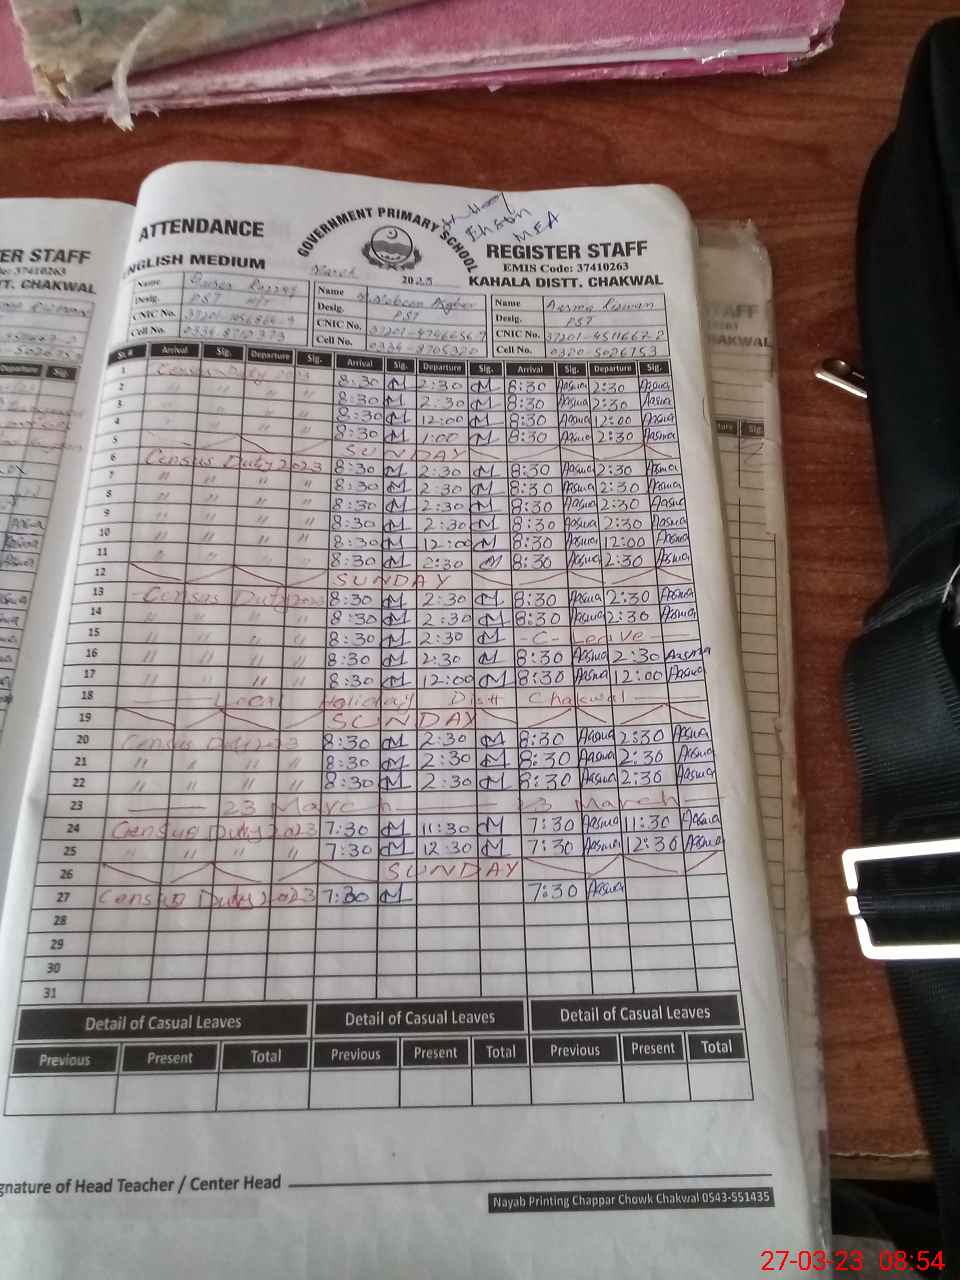 ATTENDANCE
GOVERNMENT PRIMARY SCHOOL
Ehsan
MEA
REGISTER STAFF
EMIS Code: 37410263
ENGLISH MEDIUM
March 2023
KAHALA DISTT. CHAKWAL
Name Name Name Aasma Rizwan
Desig. PST Desig. PST Desig. PST
CNIC No. CNIC No. CNIC No. 37201-4511667-2
Cell No. Cell No. 0334-8705320 Cell No. 0320-5026753
Sr.# Arrival Sig. Departure Sig. Arrival Sig. Departure Sig. Arrival Sig. Departure Sig.
1 Census Duty 2023 8:30 M 2:30 M 8:30 Aasma 2:30 Aasma
2 " " " 8:30 M 2:30 M 8:30 Aasma 2:30 Aasma
3 " " " 8:30 M 12:00 M 8:30 Aasma 12:00 Aasma
4 " " " 8:30 M 1:00 M 8:30 Aasma 2:30 Aasma
5 SUNDAY
6 Census Duty 2023 8:30 M 2:30 M 8:30 Aasma 2:30 Aasma
7 " " " " 8:30 M 2:30 M 8:30 Aasma 2:30 Aasma
8 " " " " 8:30 M 2:30 M 8:30 Aasma 2:30 Aasma
9 " " " " 8:30 M 2:30 M 8:30 Aasma 2:30 Aasma
10 " " " " 8:30 M 12:00 M 8:30 Aasma 12:00 Aasma
11 " " " " 8:30 M 2:30 M 8:30 Aasma 2:30 Aasma
12 SUNDAY
13 Census Duty 2023 8:30 M 2:30 M 8:30 Aasma 2:30 Aasma
14 " " " " 8:30 M 2:30 M 8:30 Aasma 2:30 Aasma
15 " " " " 8:30 M 2:30 M - C - Leave -
16 " " " " 8:30 M 2:30 M 8:30 Aasma 2:30 Aasma
17 " " " " 8:30 M 12:00 M 8:30 Aasma 12:00 Aasma
18 Local Holiday Distt Chakwal
19 SUNDAY
20 Census Duty 2023 8:30 M 2:30 M 8:30 Aasma 2:30 Aasma
21 " " " " 8:30 M 2:30 M 8:30 Aasma 2:30 Aasma
22 " " " " 8:30 M 2:30 M 8:30 Aasma 2:30 Aasma
23 23 March 23 March
24 Census Duty 2023 7:30 M 11:30 M 7:30 Aasma 11:30 Aasma
25 " " " " 7:30 M 12:30 M 7:30 Aasma 12:30 Aasma
26 SUNDAY
27 Census Duty 2023 7:30 M 7:30 Aasma
28
29
30
31
Detail of Casual Leaves Detail of Casual Leaves Detail of Casual Leaves
Previous Present Total Previous Present Total Previous Present Total
gnature of Head Teacher / Center Head
Nayab Printing Chappar Chowk Chakwal 0543-551435
27-03-23 08:54